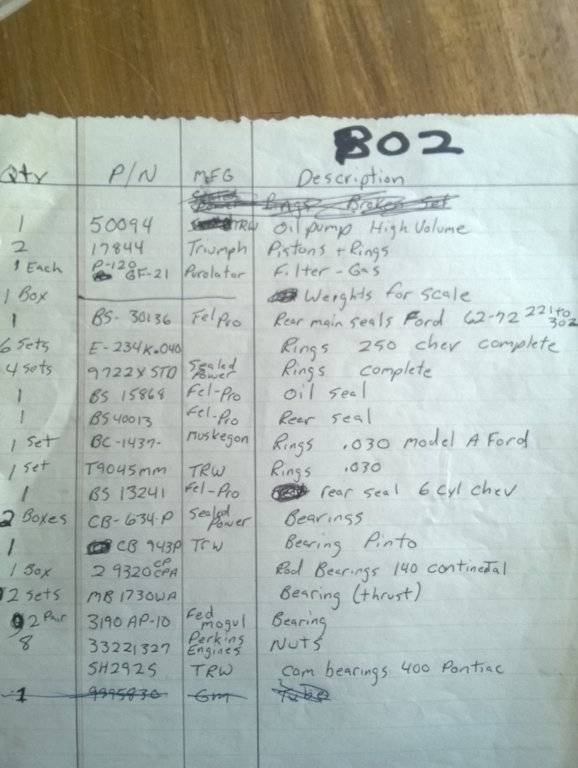 802
Qty P/N MFG Description
Rings Broken Set
1 50094 TRW Oil pump High Volume
2 17844 Triumph Pistons + Rings
1 Each P-120 GF-21 Purolator Filter - Gas
1 Box Weights for scale
1 BS-30136 Fel Pro Rear main seals Ford 62-72 221 to 302
6 Sets E-234K.040 Rings 250 chev complete
4 sets 9722X STD Sealed Power Rings complete
1 BS 15868 Fel-Pro Oil seal
1 BS40013 Fel-Pro Rear seal
1 set BC-1437- Muskegon Rings .030 model A Ford
1 set T9045mm TRW Rings .030
1 BS 13241 Fel-Pro rear seal 6 cyl chev
2 Boxes CB-634-P Sealed Power Bearings
1 CB 943P TRW Bearing Pinto
1 Box 2 9320 CP CPA Rod Bearings 140 continetal
2 sets MB1730WA Bearing (thrust)
2 Pair 3190 AP-10 Fed mogul Bearing
8 33221327 Perkins Engines Nuts
SH292S TRW Cam bearings 400 Pontiac
1 9995830 Gm Tube